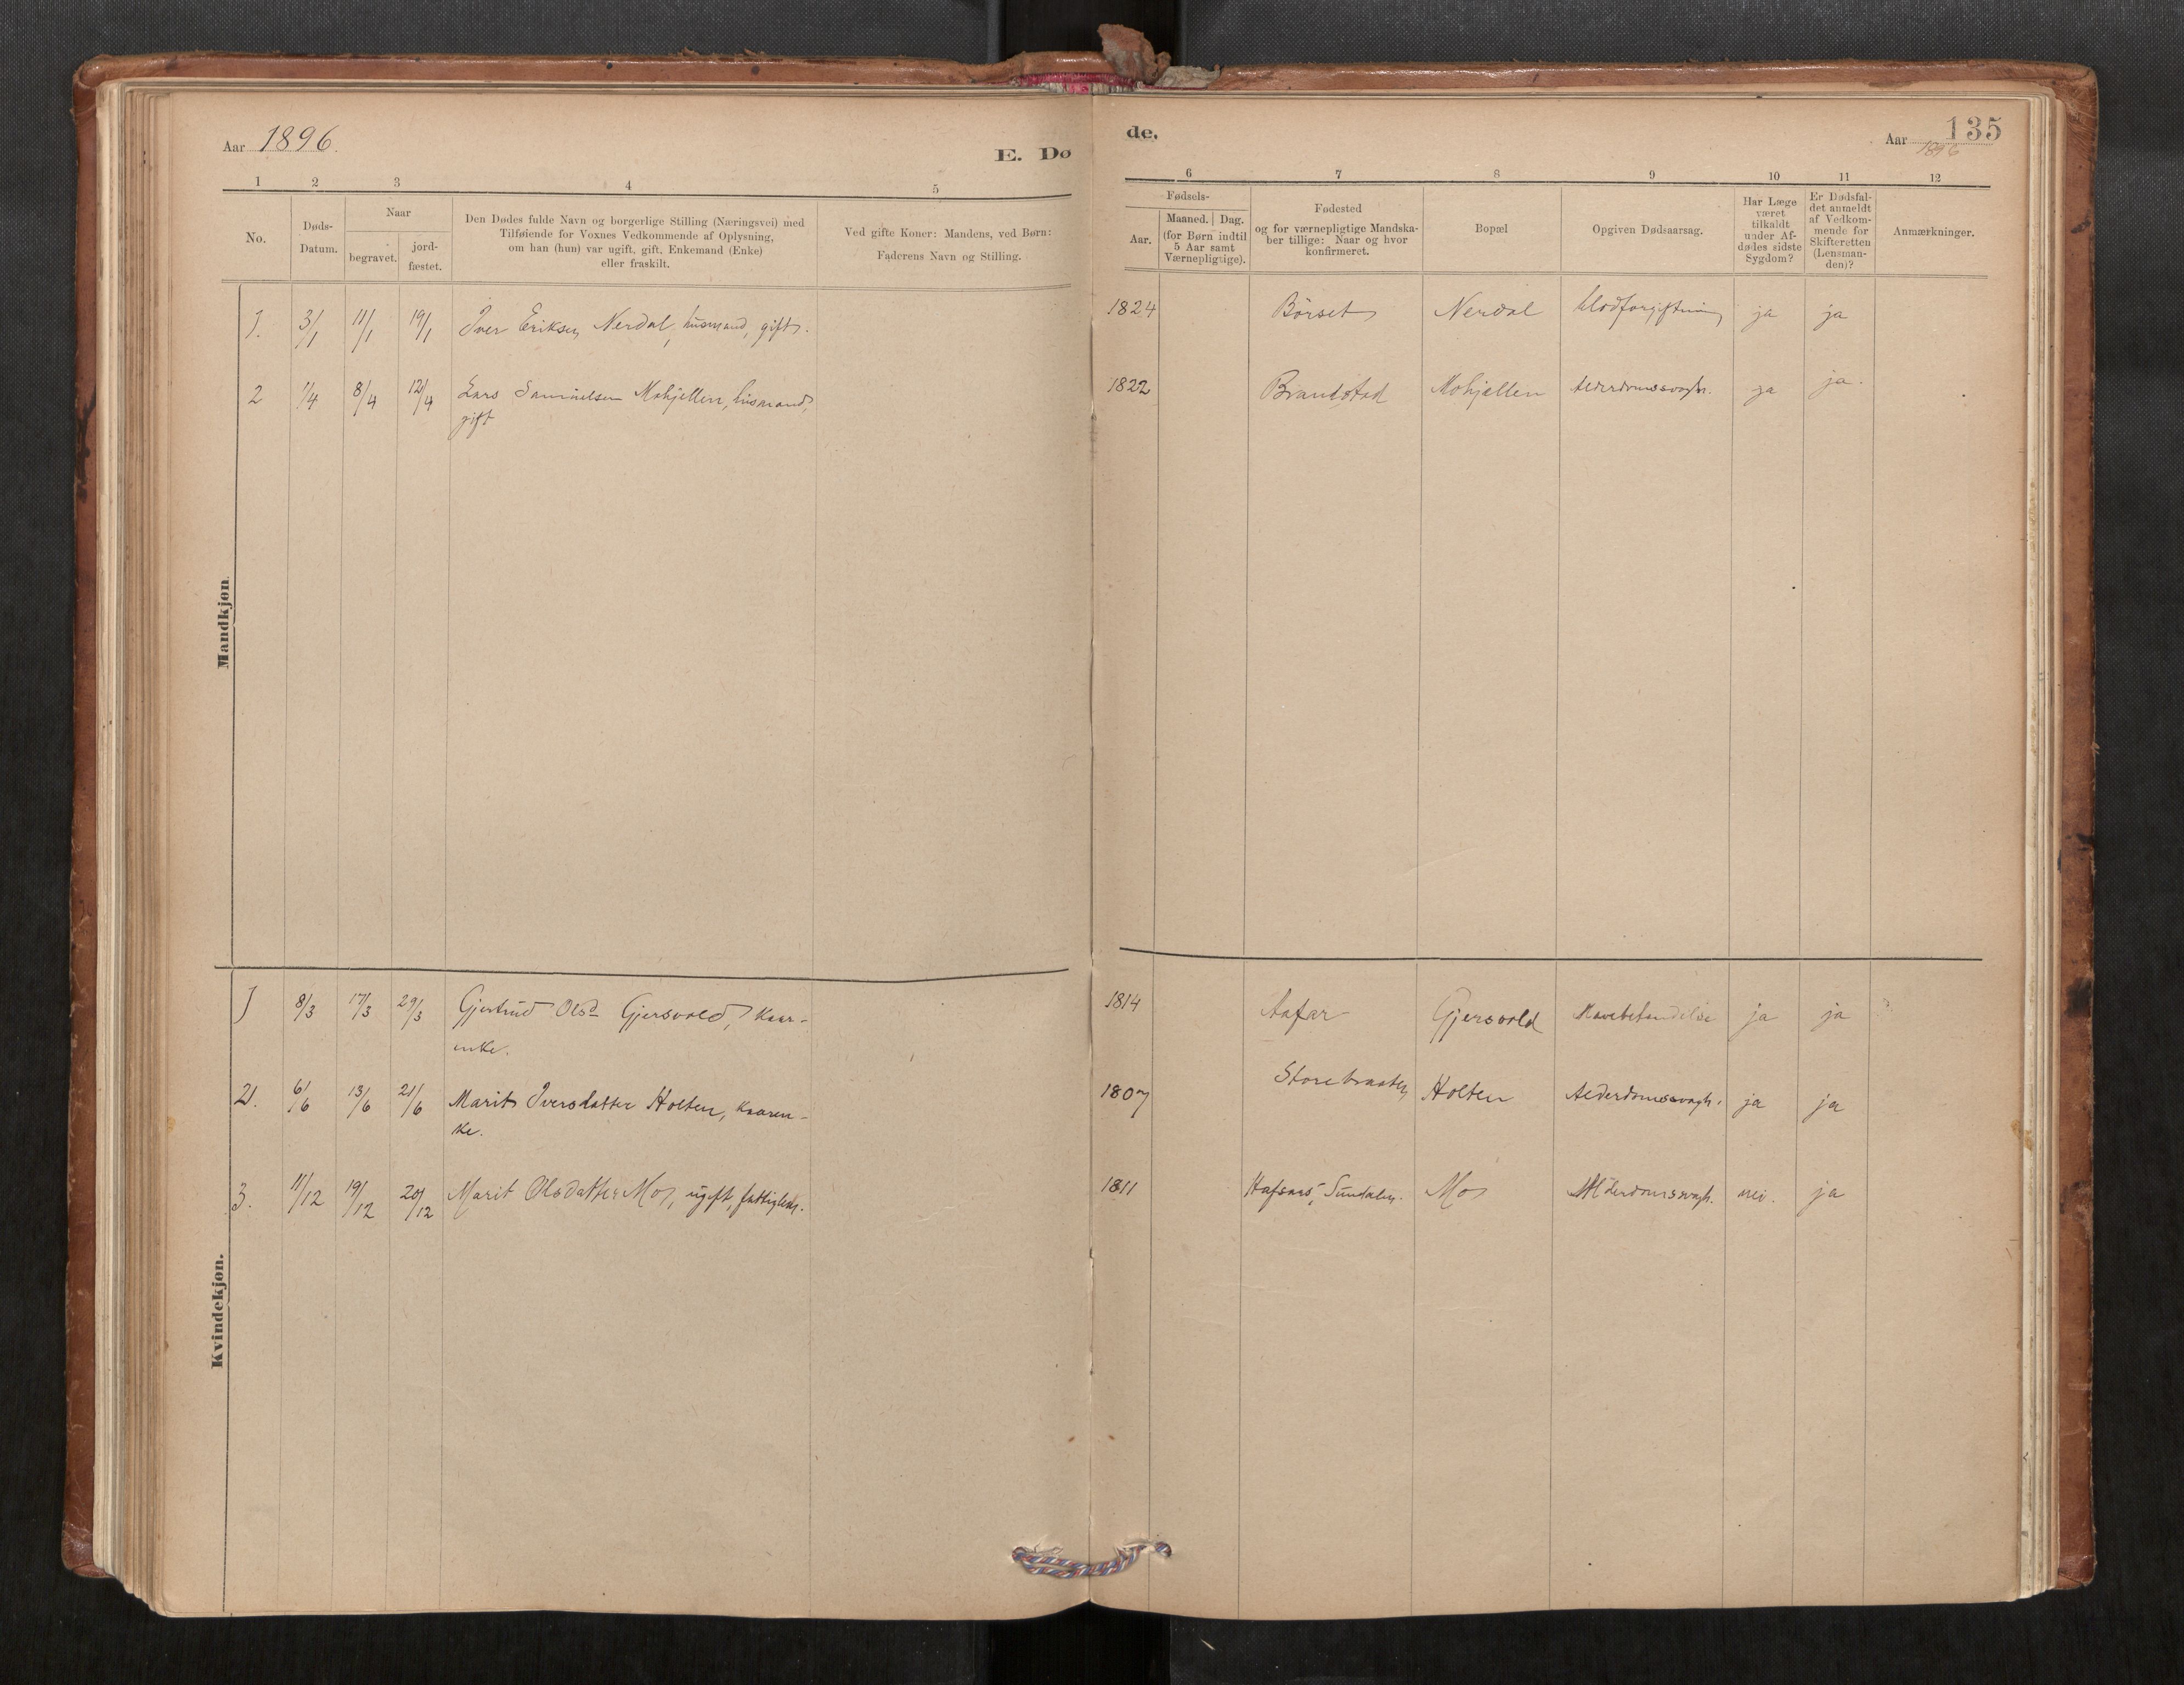 Aar 1896.
E. Dø
1 2 3 4 5
No.
Døds-
Datum.
Naar
begravet.
jord-
fæstet.
Den Dødes fulde Navn og borgerlige Stilling (Næringsvei) med
Tilføiende for Voxnes Vedkommende af Oplysning,
om han (hun) var ugift, gift, Enkemand (Enke)
eller fraskilt.
Ved gifte Koner: Mandens, ved Børn:
Faderens Navn og Stilling.
Mandkjøn.
1. 3/1 11/1 19/1 Iver Eriksen Nerdal, husmand, gift.
2 1/4 8/4 12/4 Lars Samuelsen Mohjellen, husmand,
gift
Kvindekjøn.
1 8/3 17/3 29/3 Gjertrud Olsd Gjersvold, Kaar-
enke.
2. 6/6 13/6 21/6 Marit Iversdatter Holten, Kaaren-
ke.
3. 11/12 19/12 20/12 Marit Olsdatter Mo, ugift, fattiglem.
de.
Aar 1896
135
6 7 8 9 10 11 12
Fødsels-
Aar.
Maaned. Dag.
(for Børn indtil
5 Aar samt
Værnepligtige).
Fødested
og for værnepligtige Mandska-
ber tillige: Naar og hvor
konfirmeret.
Bopæl
Opgiven Dødsaarsag.
Har Læge
været
tilkaldt
under Af-
dødes sidste
Sygdom?
Er Dødsfal-
det anmeldt
af Vedkom-
mende for
Skifteretten
(Lensman-
den)?
Anmærkninger.
1824 Börset Nerdal blodforgiftning ja ja
1822 Brandstad Mohjellen Alderdomssvagh. ja ja.
1814 Gjersvold ja ja
1807 Storebraaten Holten Alderdomssvagh. ja ja
1811 Hafsaas, Sundalen. Mo Alderdomssvagh. nei. ja